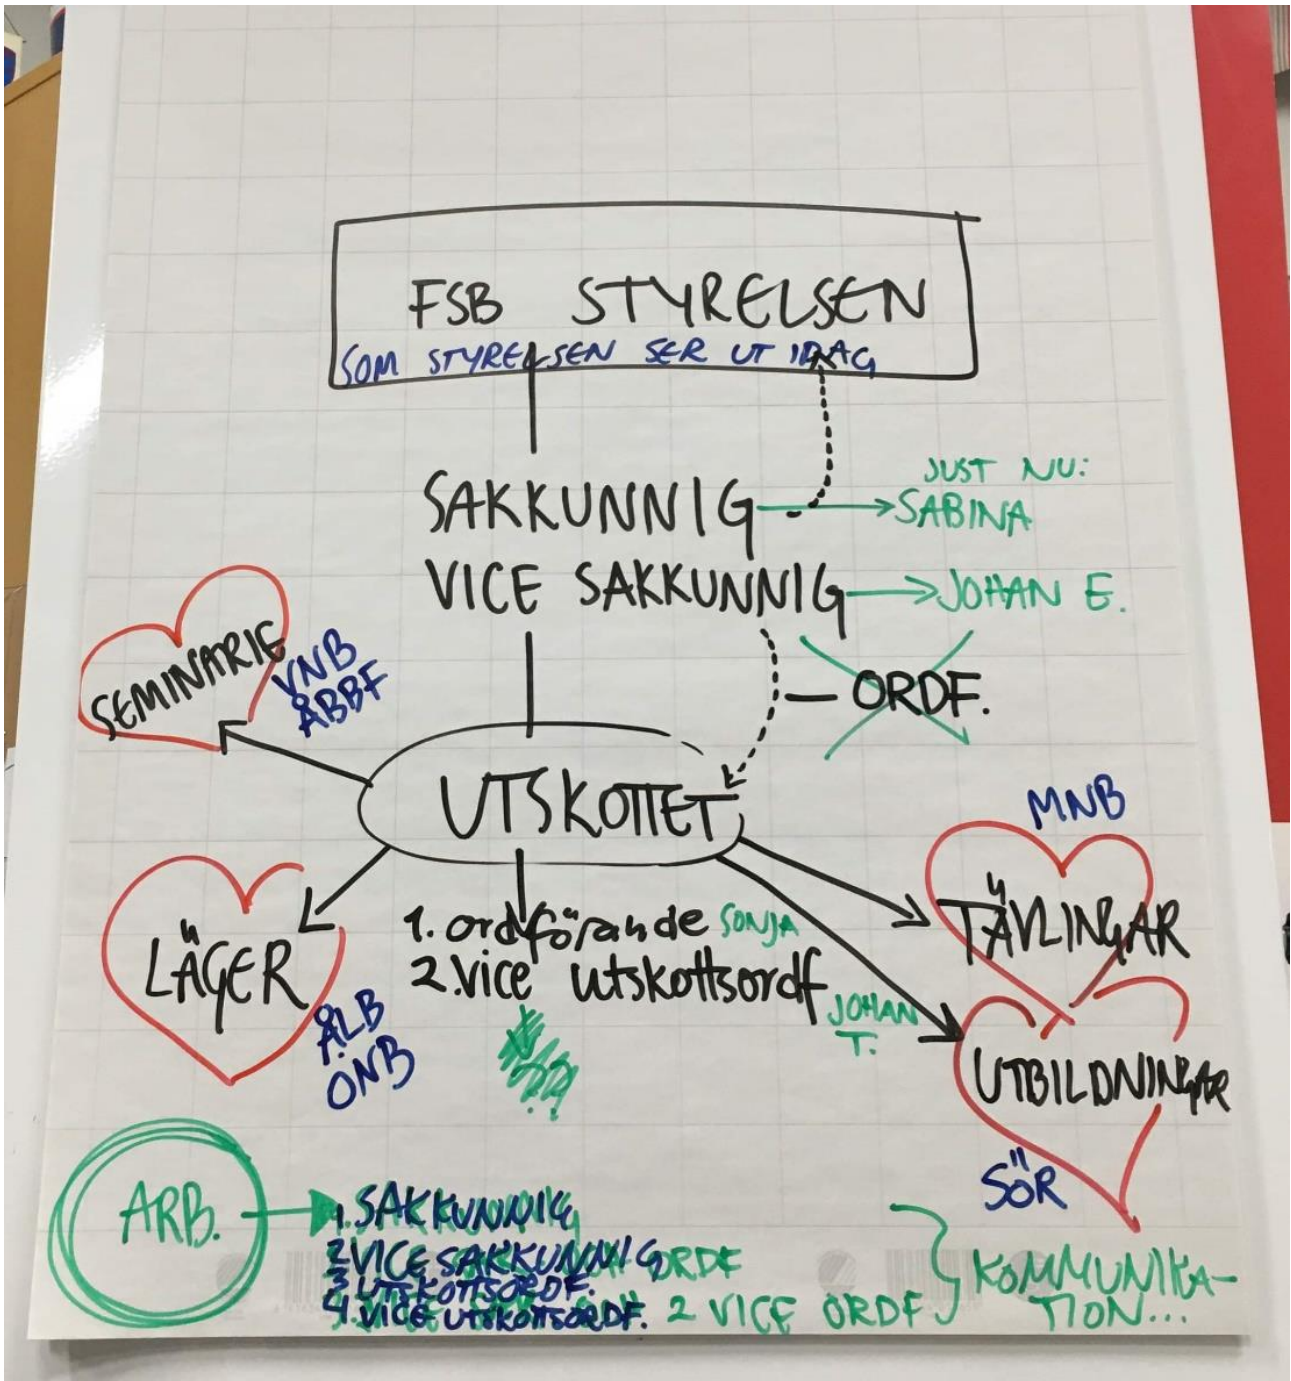 FSB STYRELSEN
SOM STYRELSEN SER UT IDAG
JUST NU:
SAKKUNNIG
SABINA
VICE SAKKUNNIG
JOHAN E.
ORDF.
SEMINARIE
VNB
ÅBBF
UTSKOTTET
MNB
TÄVLINGAR
LÄGER
1. ordförande SONJA
2. vice utskottsordf JOHAN
T.
ÅLB
ÖNB
UTBILDNINGAR
SÖR
ARB.
1. SAKKUNNIG
2 VICE SAKKUNNIG ORDF
3 UTSKOTTSORDF.
4. VICE UTSKOTTSORDF. 2 VICE ORDF
KOMMUNIKA-
TION...